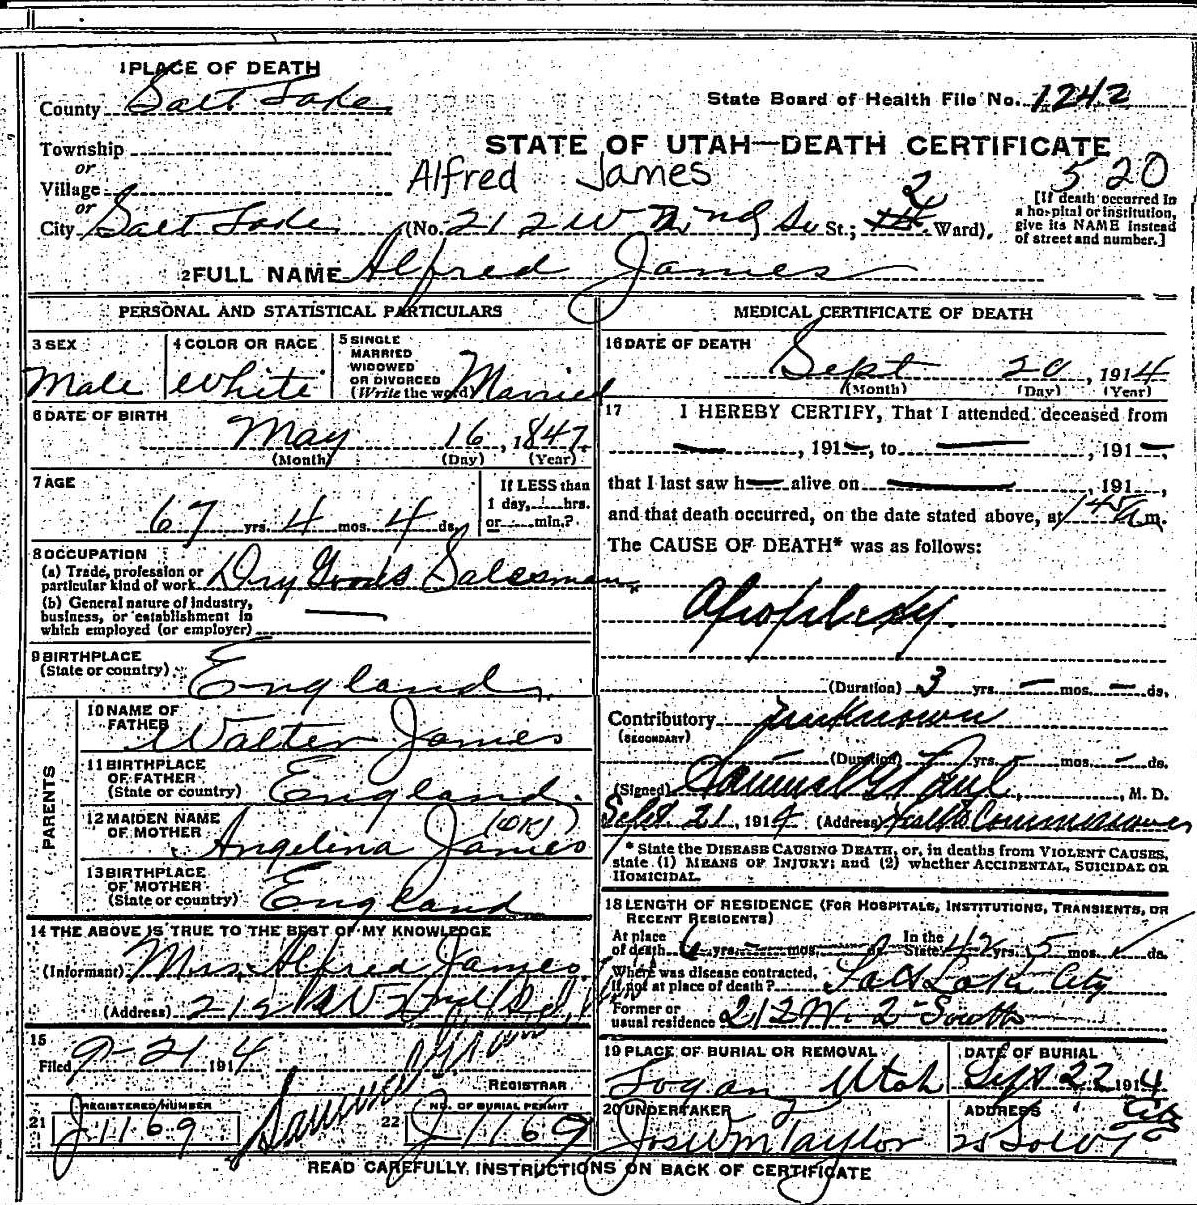 1 PLACE OF DEATH
County Salt Lake
State Board of Health File No. 1242
Township
or
Village
or
City Salt Lake
STATE OF UTAH—DEATH CERTIFICATE
Alfred James
520
(No. 212 W 2nd So St.; 2 Ward)
[If death occurred in
a hospital or institution,
give its NAME instead
of street and number.]
2 FULL NAME Alfred James
PERSONAL AND STATISTICAL PARTICULARS
3 SEX
Male
4 COLOR OR RACE
White
5 SINGLE
MARRIED
WIDOWED
OR DIVORCED
(Write the word) Married
6 DATE OF BIRTH
May 16, 1847
(Month) (Day) (Year)
7 AGE
67 yrs. 4 mos. 4 ds.
If LESS than
1 day, hrs.
or min.?
8 OCCUPATION
(a) Trade, profession or
particular kind of work Dry Goods Salesman
(b) General nature of industry,
business, or establishment in
which employed (or employer)
9 BIRTHPLACE
(State or country) England
PARENTS
10 NAME OF
FATHER
Walter James
11 BIRTHPLACE
OF FATHER
(State or country) England
12 MAIDEN NAME
OF MOTHER
Angelina James (OK)
13 BIRTHPLACE
OF MOTHER
(State or country) England
14 THE ABOVE IS TRUE TO THE BEST OF MY KNOWLEDGE
(Informant) Mrs. Alfred James
(Address) 212 W 2nd So.
15
Filed 9-21 1914
REGISTRAR
21 REGISTERED NUMBER
J 1169
22 NO. OF BURIAL PERMIT
J 1169
MEDICAL CERTIFICATE OF DEATH
16 DATE OF DEATH
Sept 20, 1914
(Month) (Day) (Year)
17 I HEREBY CERTIFY, That I attended deceased from
—, 191—, to —, 191—,
that I last saw h— alive on —, 191 ,
and that death occurred, on the date stated above, at 1 45 A.m.
The CAUSE OF DEATH* was as follows:
Apoplexy.
(Duration) 3 yrs. — mos. — ds.
Contributory Unknown
(SECONDARY)
(Duration) — yrs. — mos. — ds.
(Signed) Samuel G Paul, M. D.
Sept 21, 1914 (Address) Health Commissioner
* State the DISEASE CAUSING DEATH, or, in deaths from VIOLENT CAUSES,
state (1) MEANS OF INJURY; and (2) whether ACCIDENTAL, SUICIDAL OR
HOMICIDAL.
18 LENGTH OF RESIDENCE (FOR HOSPITALS, INSTITUTIONS, TRANSIENTS, OR
RECENT RESIDENTS)
At place
of death 6 yrs. — mos. — ds. In the
State 42 yrs. 5 mos. ds.
Where was disease contracted,
if not at place of death? Salt Lake City
Former or
usual residence 212 W. 2-South
19 PLACE OF BURIAL OR REMOVAL
Logan Utah
DATE OF BURIAL
Sept 22 1914
20 UNDERTAKER
Jos Wm Taylor
ADDRESS
City
READ CAREFULLY INSTRUCTIONS ON BACK OF CERTIFICATE